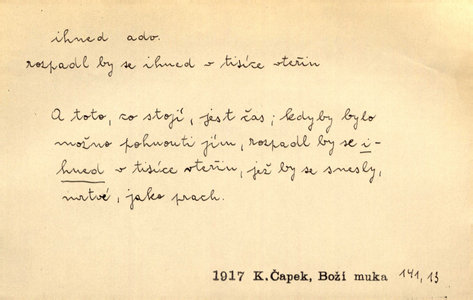 ihned adv.
rozpadl by se ihned v tisíce vteřin
A toto, co stojí, jest čas; kdyby bylo
možno pohnouti jím, rozpadl by se i-
hned v tisíce vteřin, jež by se snesly,
mrtvé, jako prach.
1917 K.Čapek, Boží muka 141,13